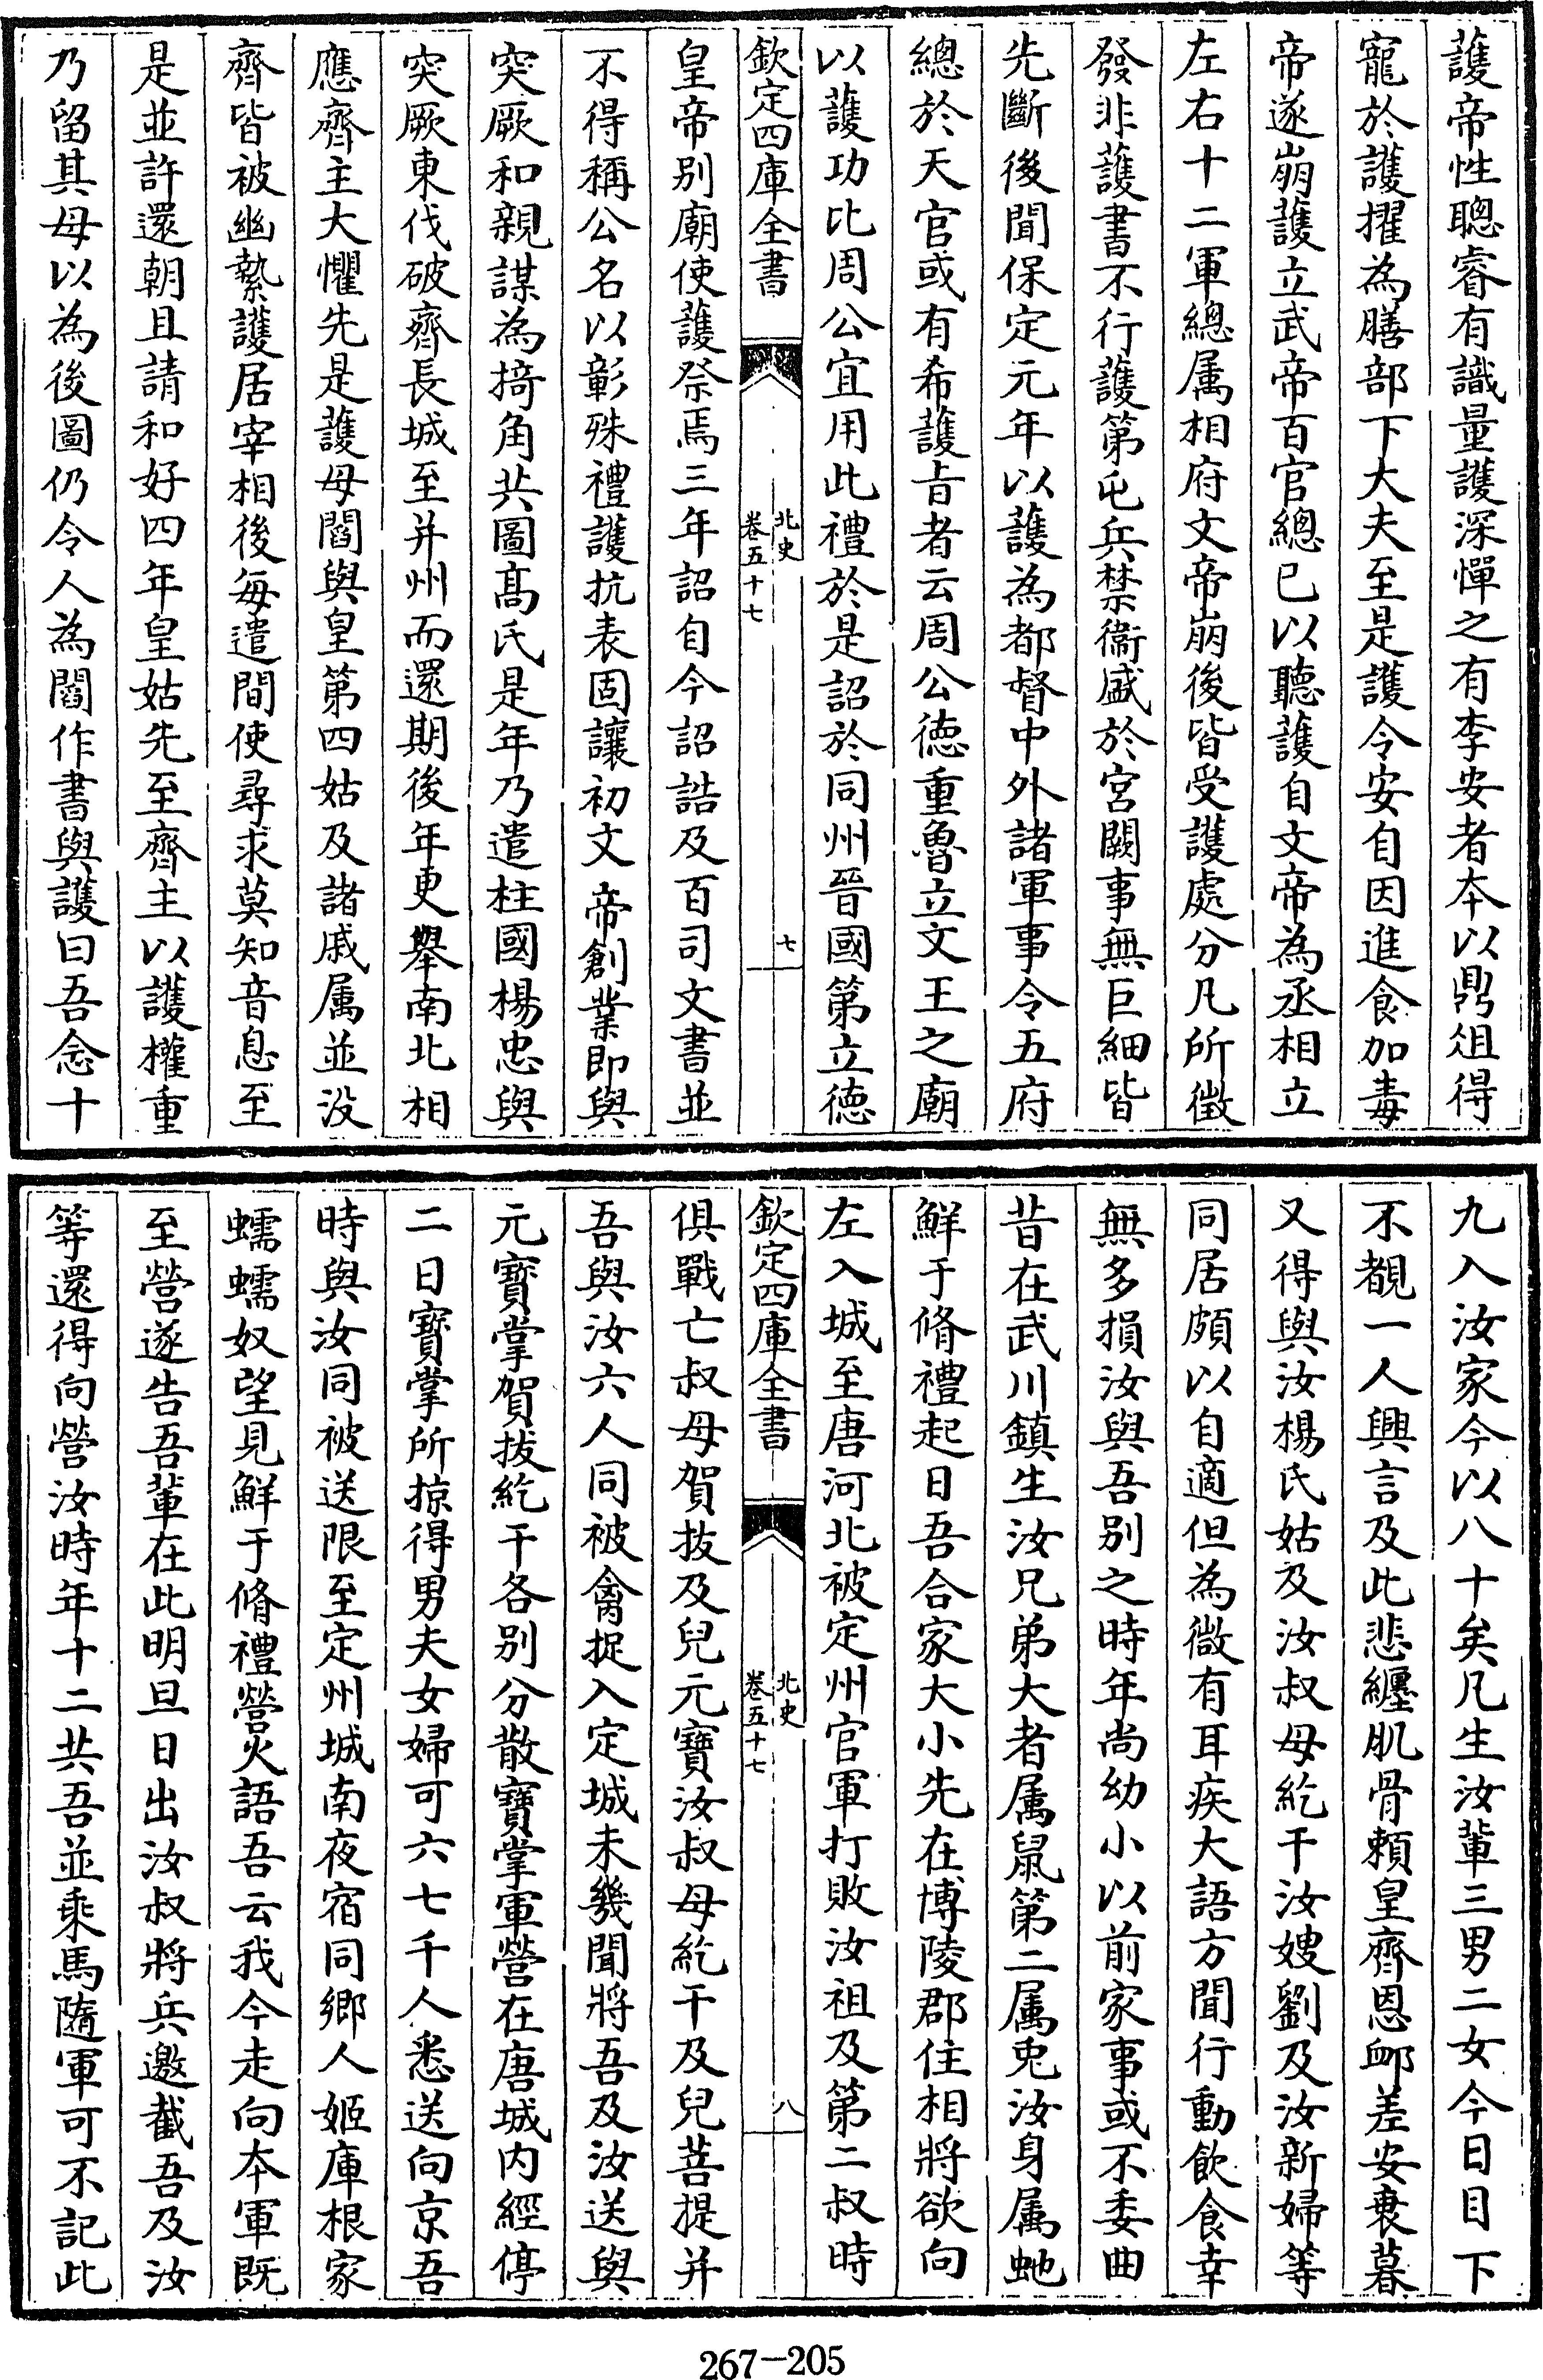 護帝性聰睿有識量護深憚之有李安者本以鼎俎得
寵於護擢為膳部下大夫至是護令安自因進食加毒
帝遂崩護立武帝百官總已以聽護自文帝為丞相立
左右十二軍總属相府文帝崩後皆受護處分凡所徴
發非護書不行護第屯兵禁衞盛於宮闕事無巨細皆
先斷後聞保定元年以護為都督中外諸軍事令五府
總於天官或有希護㫖者云周公徳重魯立文王之廟
以護功比周公宜用此禮於是詔於同州晉國第立徳
欽定四庫全書
北史
卷五十七
七
皇帝别廟使護祭焉三年詔自今詔誥及百司文書並
不得稱公名以彰殊禮護抗表固讓初文帝創業即與
突厥和親謀為掎角共圖髙氏是年乃遣柱國楊忠與
突厥東伐破齊長城至并州而還期後年更舉南北相
應齊主大懼先是護母閻與皇第四姑及諸戚属並没
齊皆被幽縶護居宰相後毎遣間使尋求莫知音息至
是並許還朝且請和好四年皇姑先至齊主以護權重
乃留其母以為後圖仍令人為閻作書與護曰吾念十
九入汝家今以八十矣凡生汝輩三男二女今日目下
不覩一人興言及此悲纒肌骨頼皇齊恩衈差安衰暮
又得與汝楊氏姑及汝叔母紇干汝嫂劉及汝新婦等
同居頗以自適但為微有耳疾大語方聞行動飲食幸
無多損汝與吾别之時年尚幼小以前家事或不委曲
昔在武川鎮生汝兄弟大者属鼠第二属兎汝身属虵
鮮于脩禮起日吾合家大小先在博陵郡住相將欲向
左入城至唐河北被定州官軍打敗汝祖及第二叔時
欽定四庫全書
北史
卷五十七
八
俱戰亡叔母賀拔及兒元寶汝叔母紇干及兒菩提并
吾與汝六人同被禽捉入定城未幾聞將吾及汝送與
元寳掌賀拔紇干各别分散寳掌軍營在唐城内經停
二日寳掌所掠得男夫女婦可六七千人悉送向京吾
時與汝同被送限至定州城南夜宿同鄉人姬庫根家
蠕蠕奴望見鮮于脩禮營火語吾云我今走向本軍既
至營遂告吾輩在此明旦日出汝叔將兵邀截吾及汝
等還得向營汝時年十二共吾並乘馬隨軍可不記此
267-205